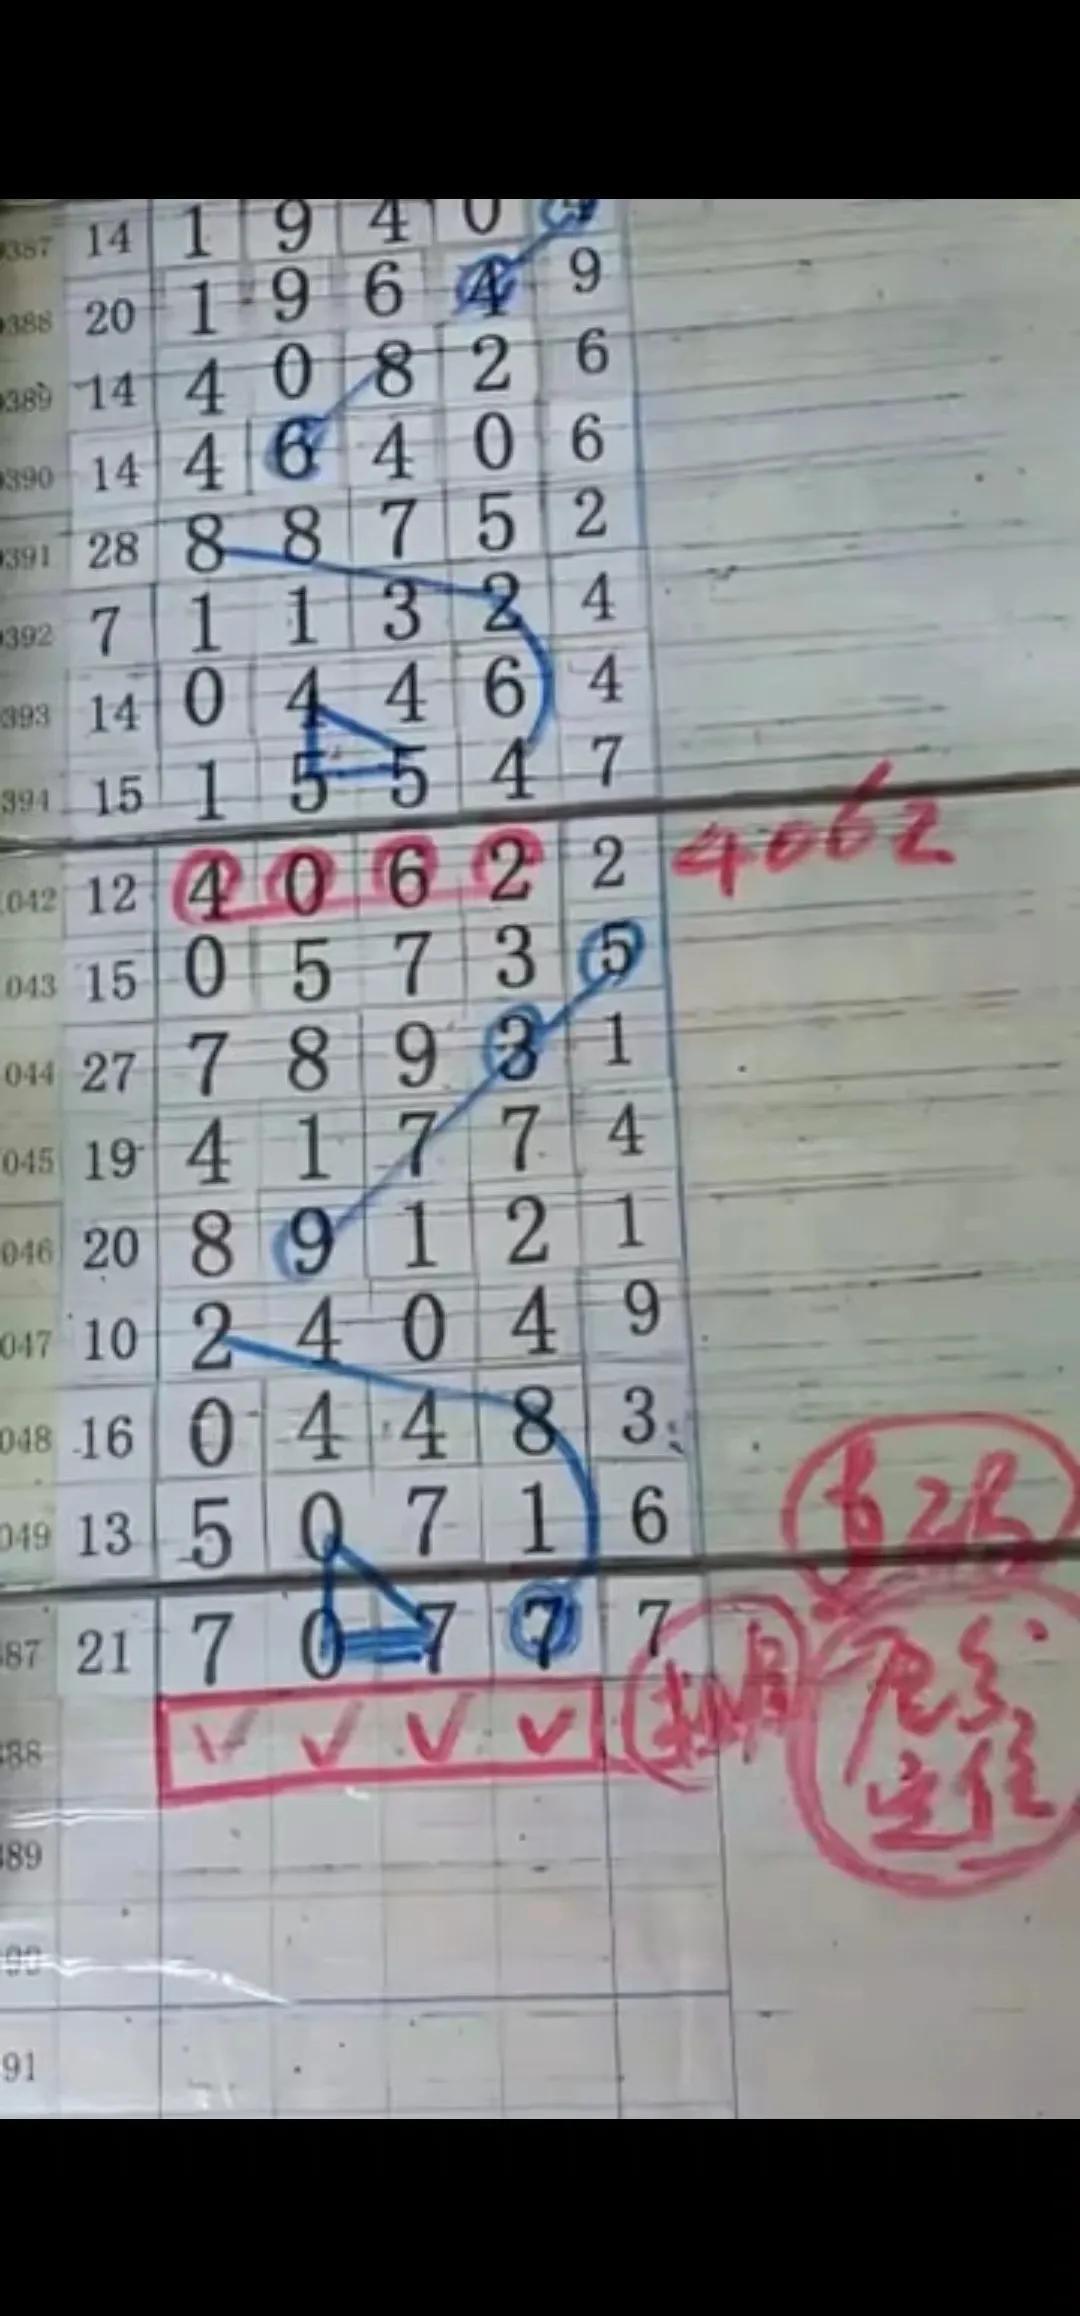 387 14 1 9 4 0
388 20 1 9 6 4 9
389 14 4 0 8 2 6
390 14 4 6 4 0 6
391 28 8 8 7 5 2
392 7 1 1 3 2 4
393 14 0 4 4 6 4
394 15 1 5 5 4 7
042 12 4 0 6 2 2 4062
043 15 0 5 7 3 5
044 27 7 8 9 3 1
045 19 4 1 7 7 4
046 20 8 9 1 2 1
047 10 2 4 0 4 9
048 16 0 4 4 8 3
049 13 5 0 7 1 6
87 21 7 0 7 7 7
88
定位
89
90
91